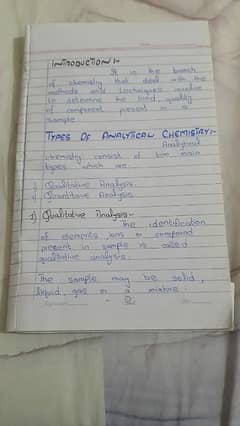 INTRODUCTION :-
It is the branch
of chemistry that deal with the
methods and techniques involve
to determine the kind, quality
of component present in a
sample
TYPES OF ANALYTICAL CHEMISTRY:-
Analytical
chemistry consist of two main
types which are
i) Qualitative Analysis
ii) Quantitative Analysis
1) Qualitative Analysis:-
the identification
of elements, ions or compound
present in sample is called
qualitative analysis.
The sample may be solid,
liquid, gas or a mixture.